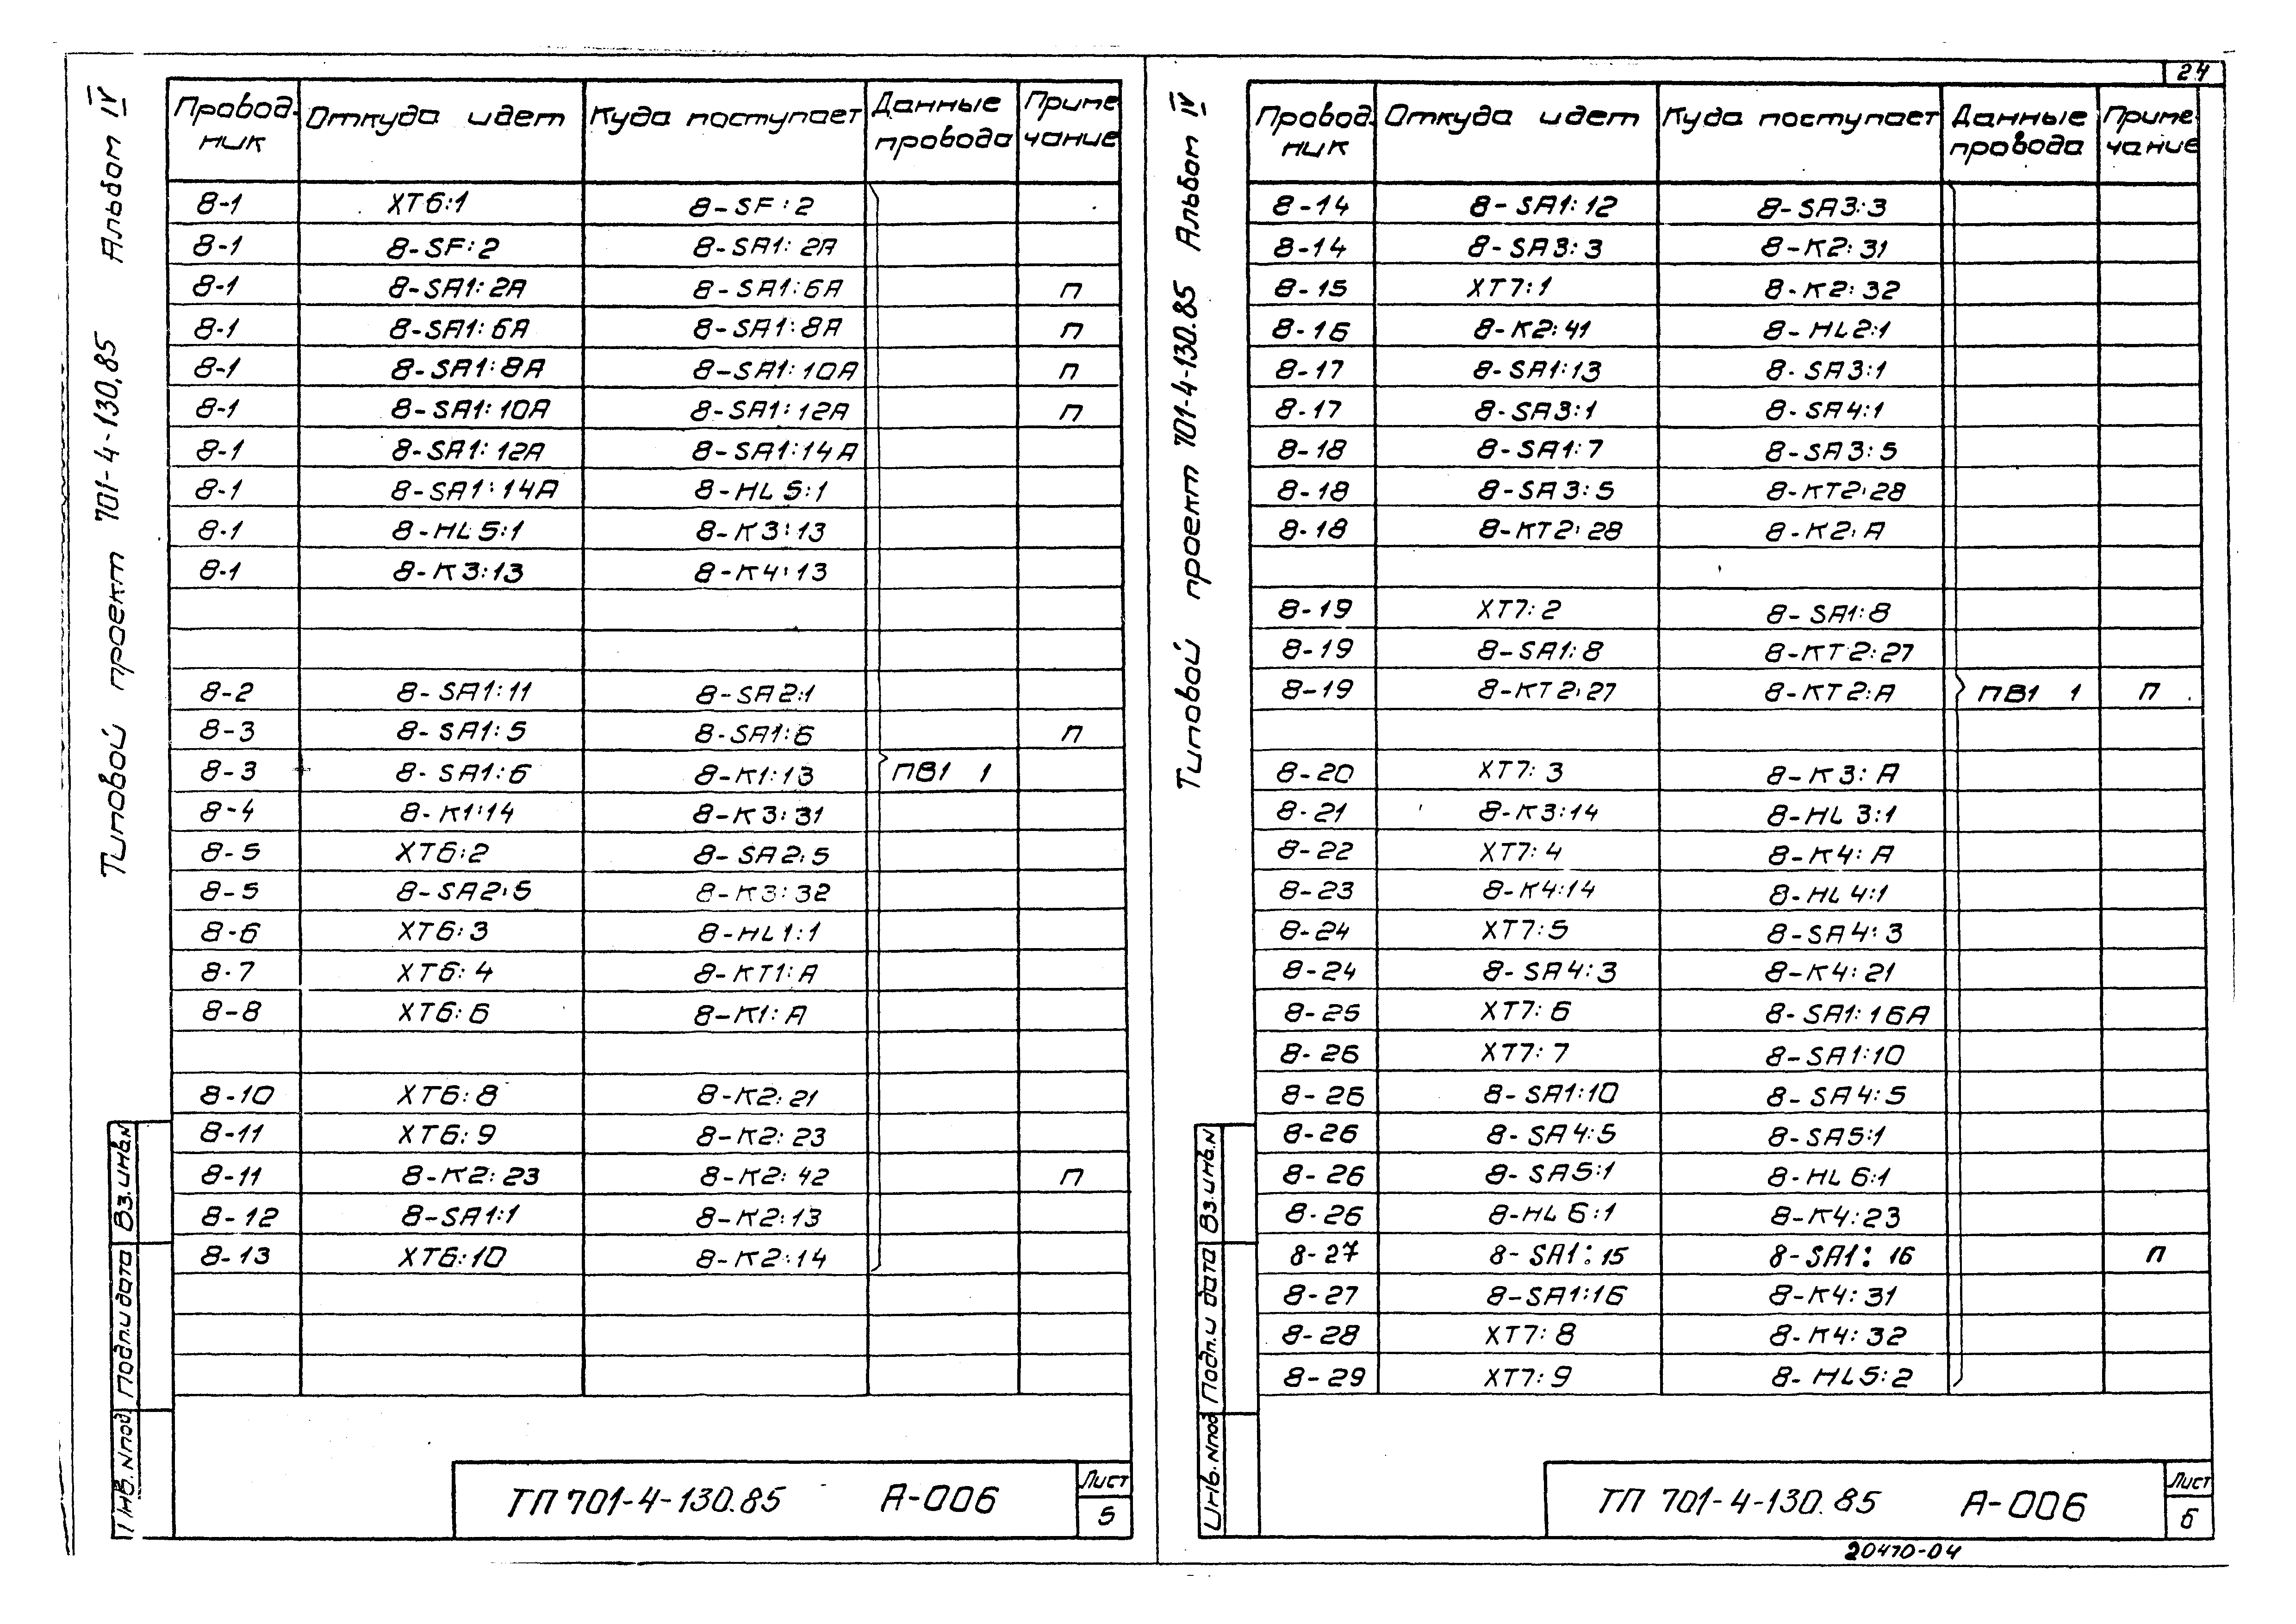 Типовой проект 701-4-130.85 Альбом IV
Провод- Откуда идет Куда поступает Данные Приме
ник провода чание
8-1 XT6:1 8-SF:2
8-1 8-SF:2 8-SA1:2A
8-1 8-SA1:2A 8-SA1:6A П
8-1 8-SA1:6A 8-SA1:8A П
8-1 8-SA1:8A 8-SA1:10A П
8-1 8-SA1:10A 8-SA1:12A П
8-1 8-SA1:12A 8-SA1:14A
8-1 8-SA1:14A 8-HL5:1
8-1 8-HL5:1 8-K3:13
8-1 8-K3:13 8-K4:13
8-2 8-SA1:11 8-SA2:1
8-3 8-SA1:5 8-SA1:6 П
8-3 8-SA1:6 8-K1:13 ПВ1 1
8-4 8-K1:14 8-K3:31
8-5 XT6:2 8-SA2:5
8-5 8-SA2:5 8-K3:32
8-6 XT6:3 8-HL1:1
8-7 XT6:4 8-KT1:A
8-8 XT6:6 8-K1:A
8-10 XT6:8 8-K2:21
8-11 XT6:9 8-K2:23
8-11 8-K2:23 8-K2:42 П
8-12 8-SA1:1 8-K2:13
8-13 XT6:10 8-K2:14
Инв.Nпод Подп.и дата Вз.инв.N
ТП 701-4-130.85 А-006
Лист
5
24
Типовой проект 701-4-130.85 Альбом IV
Провод- Откуда идет Куда поступает Данные Приме-
ник провода чание
8-14 8-SA1:12 8-SA3:3
8-14 8-SA3:3 8-K2:31
8-15 XT7:1 8-K2:32
8-16 8-K2:41 8-HL2:1
8-17 8-SA1:13 8-SA3:1
8-17 8-SA3:1 8-SA4:1
8-18 8-SA1:7 8-SA3:5
8-18 8-SA3:5 8-KT2:28
8-18 8-KT2:28 8-K2:A
8-19 XT7:2 8-SA1:8
8-19 8-SA1:8 8-KT2:27
8-19 8-KT2:27 8-KT2:A ПВ1 1 П
8-20 XT7:3 8-K3:A
8-21 8-K3:14 8-HL3:1
8-22 XT7:4 8-K4:A
8-23 8-K4:14 8-HL4:1
8-24 XT7:5 8-SA4:3
8-24 8-SA4:3 8-K4:21
8-25 XT7:6 8-SA1:16A
8-26 XT7:7 8-SA1:10
8-26 8-SA1:10 8-SA4:5
8-26 8-SA4:5 8-SA5:1
8-26 8-SA5:1 8-HL6:1
8-26 8-HL6:1 8-K4:23
8-27 8-SA1:15 8-SA1:16 П
8-27 8-SA1:16 8-K4:31
8-28 XT7:8 8-K4:32
8-29 XT7:9 8-HL5:2
Инв.Nпод Подп.и дата Вз.инв.N
ТП 701-4-130.85 А-006
Лист
6
20470-04